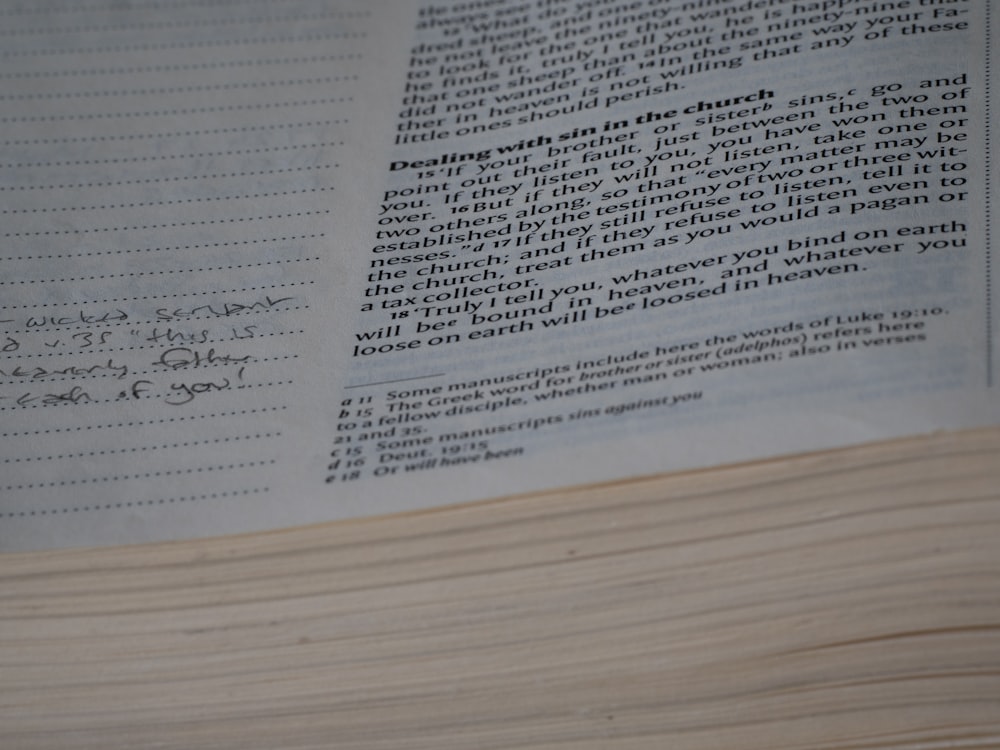 always see the
12 "What do you
dred sheep, and one of
he not leave the ninety-nine
to look for the one that wandered
he finds it, truly I tell you, he is happi
that one sheep than about the ninety-nine that
did not wander off. 14 In the same way your Fa-
ther in heaven is not willing that any of these
little ones should perish.
Dealing with sin in the church
15 'If your brother or sister b sins, c go and
point out their fault, just between the two of
you. If they listen to you, you have won them
over. 16 But if they will not listen, take one or
two others along, so that "every matter may be
established by the testimony of two or three wit-
nesses." d 17 If they still refuse to listen, tell it to
the church; and if they refuse to listen even to
the church, treat them as you would a pagan or
a tax collector.
18 'Truly I tell you, whatever you bind on earth
will be e bound in heaven, and whatever you
loose on earth will be e loosed in heaven.
a 11 Some manuscripts include here the words of Luke 19:10.
b 15 The Greek word for brother or sister (adelphos) refers here
to a fellow disciple, whether man or woman; also in verses
21 and 35.
c 15 Some manuscripts sins against you
d 16 Deut. 19:15
e 18 Or will have been
wicked servant
v.35 "this is
heavenly Father
each of you!